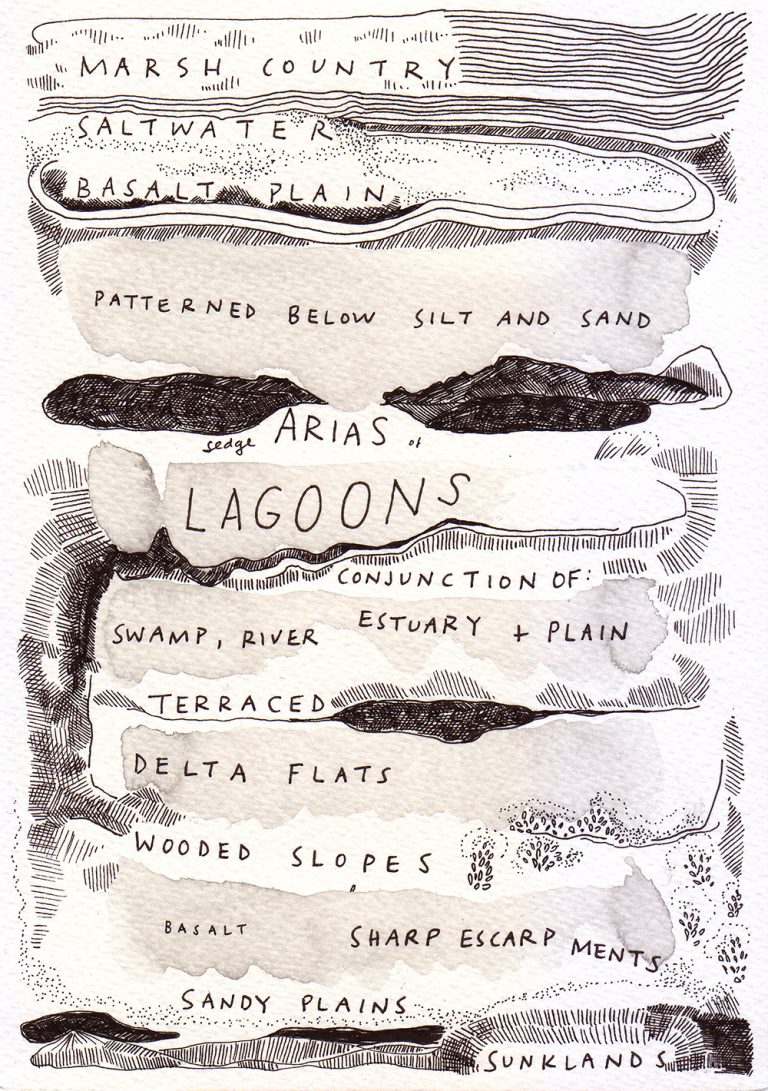 MARSH COUNTRY
SALTWATER
BASALT PLAIN
PATTERNED BELOW SILT AND SAND
sedge ARIAS of
LAGOONS
CONJUNCTION OF:
SWAMP, RIVER ESTUARY + PLAIN
TERRACED
DELTA FLATS
WOODED SLOPES
BASALT SHARP ESCARPMENTS
SANDY PLAINS
SUNKLANDS